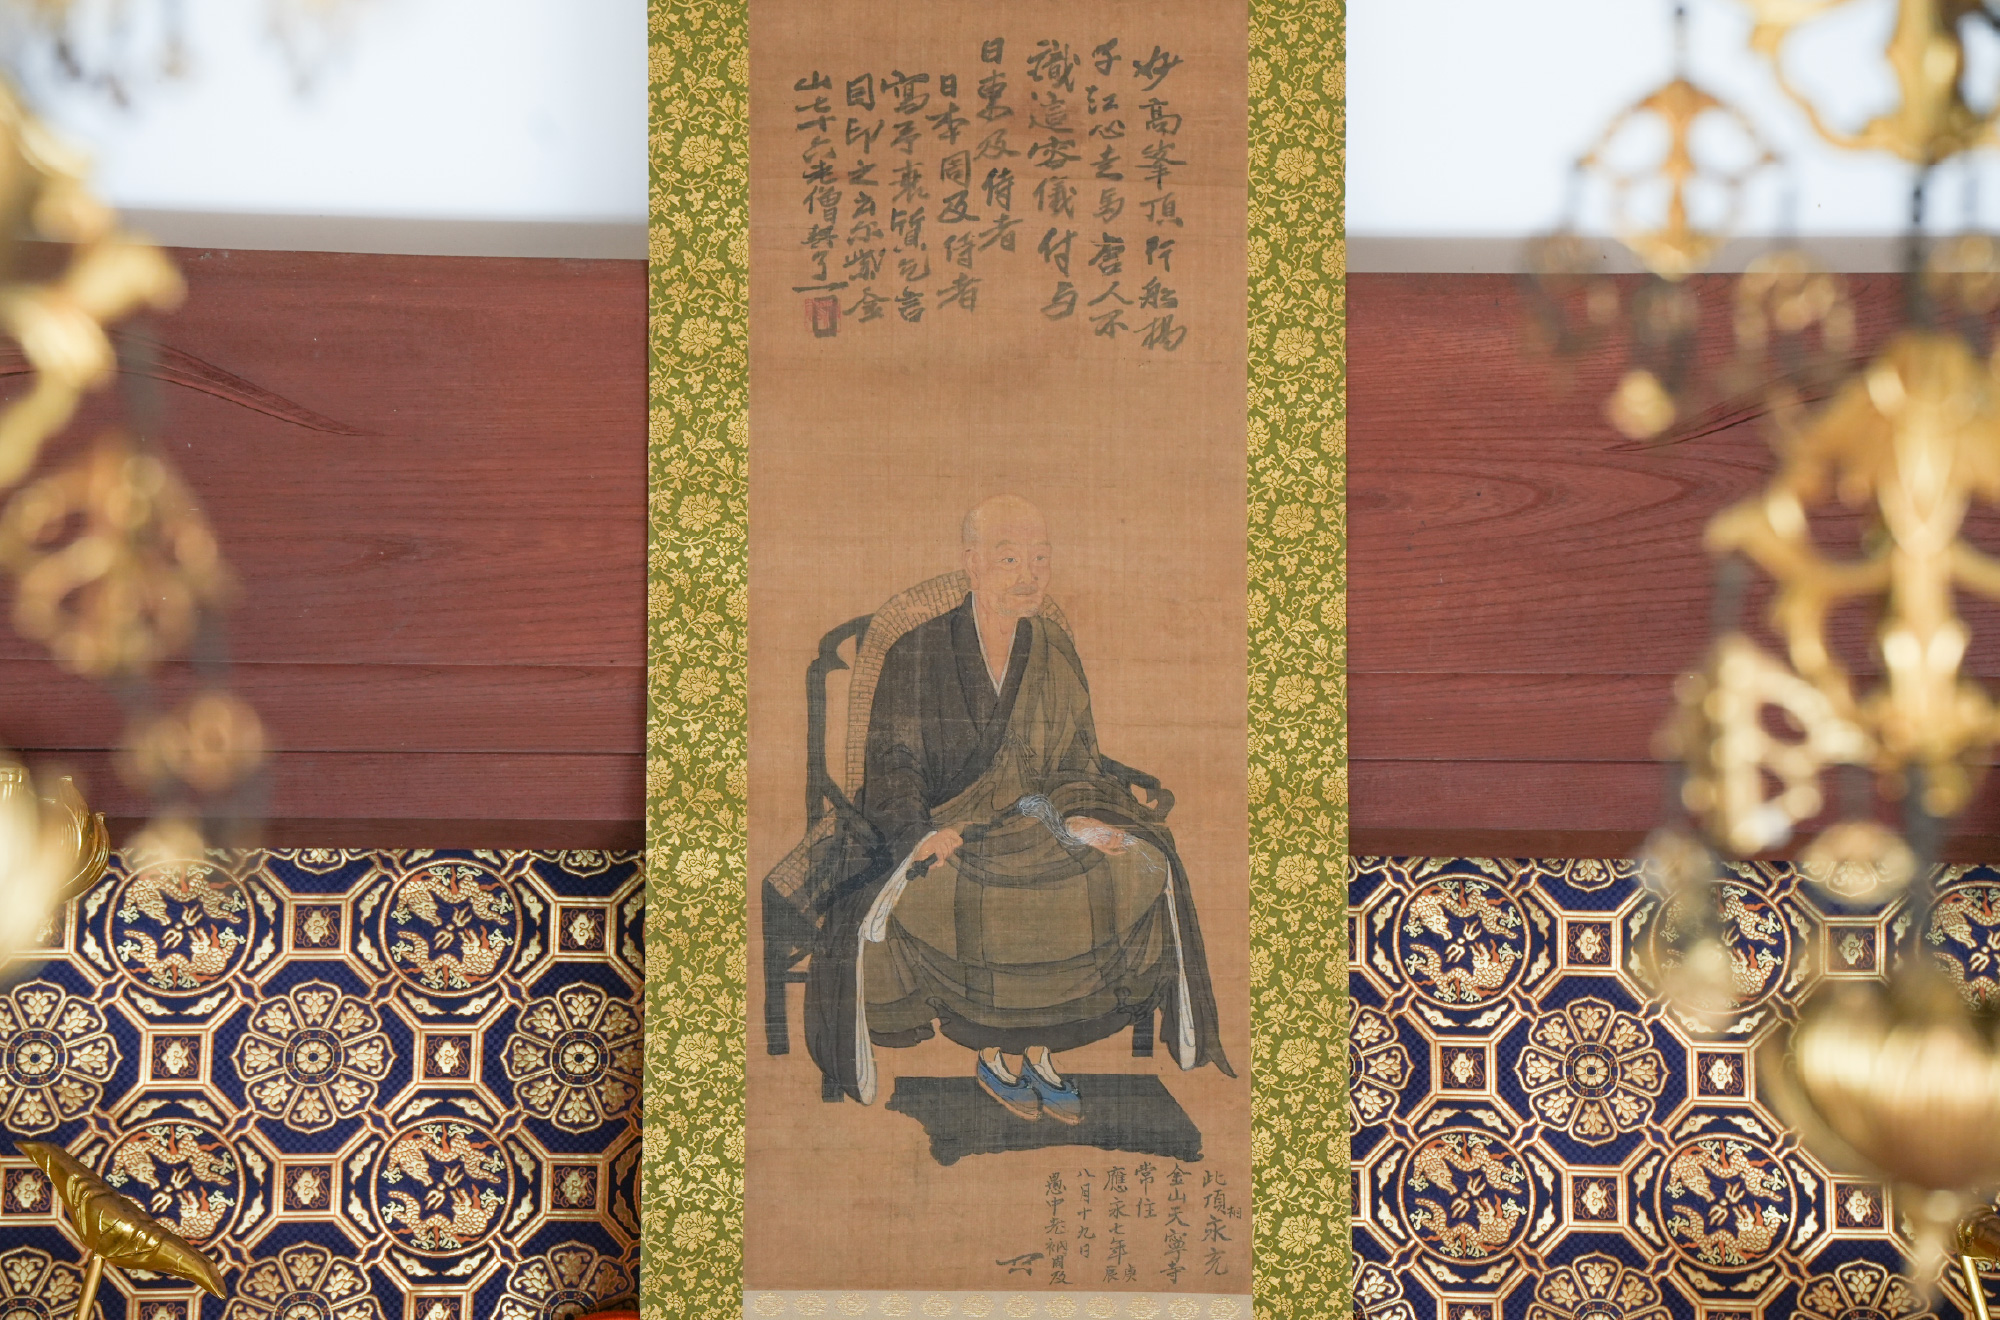 妙高峯頂行船揚
子江心走馬唐人不
識這容儀付与
日東及侍者
日本周及侍者
寫予衰質乞言
因印之云尔紫金
山七十六老僧契了
此頂相永充
金山天寧寺
常住
應永七年庚辰
八月十九日
愚中老衲周及